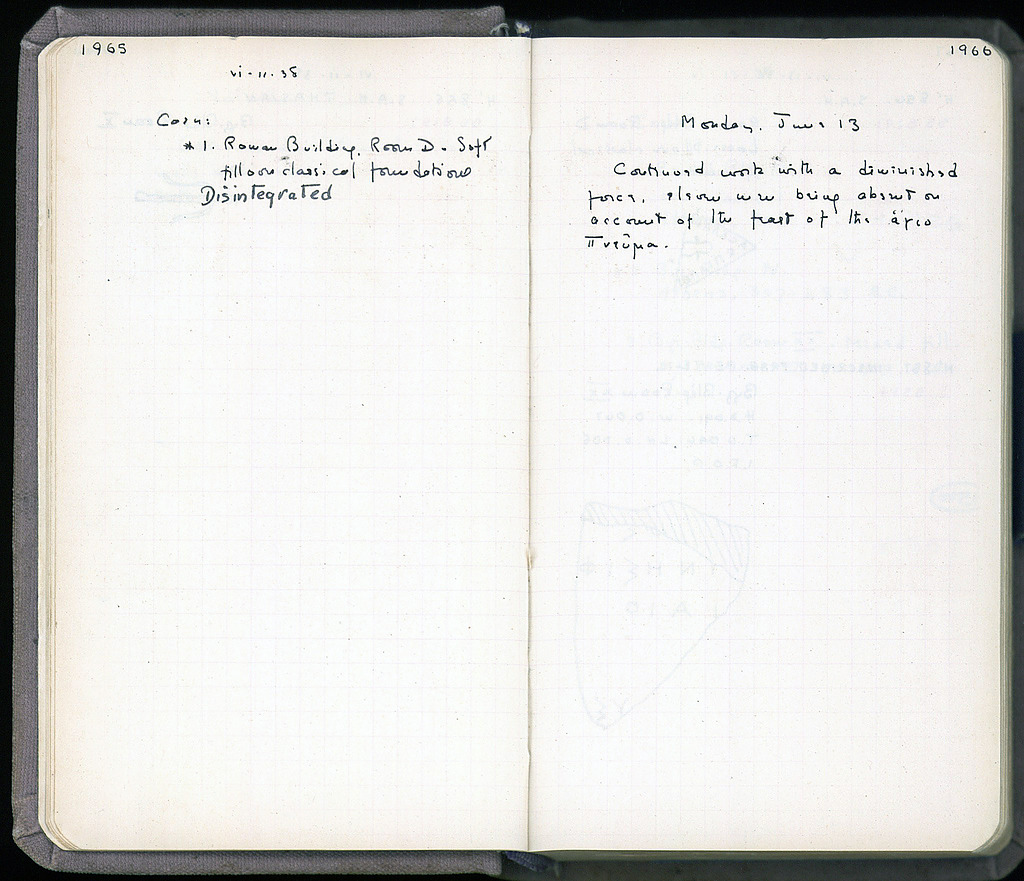 1965
vi-11-38
Coin:
* 1. Roman Building. Room D. Soft
fill over classical foundations
Disintegrated
1966
Monday. June 13
Continued work with a diminished
force, eleven men being absent on
account of the feast of the ἁγιο
Πνεῦμα.